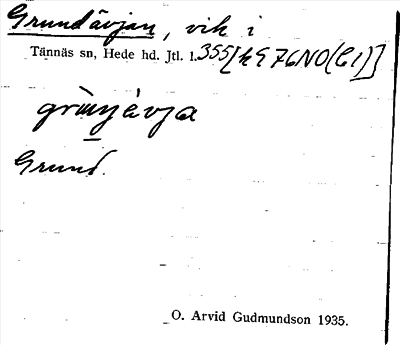 Grundåvjan, vik i
Tännäs sn, Hede hd. Jtl. l. 355[k976NO(C1)]
Grund.
O. Arvid Gudmundson 1935.